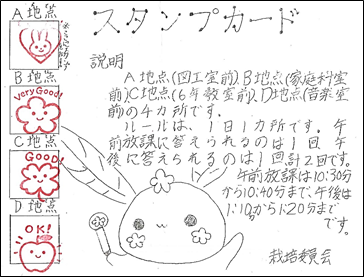 スタンプカード
A地点
B地点
Very Good!
C地点
GOOD!
D地点
OK!
説明
A地点(図工室前)、B地点(家庭科室
前)、C地点(6年教室前)、D地点(音楽室
前)の4カ所です。
ルールは、1日1カ所です。午
前放課に答えられるのは1回、午
後に答えられるのは1回計2回です。
午前放課は10:30分
から10:40分まで、午後は
1:10分から1:20分まで
です。
栽培委員会